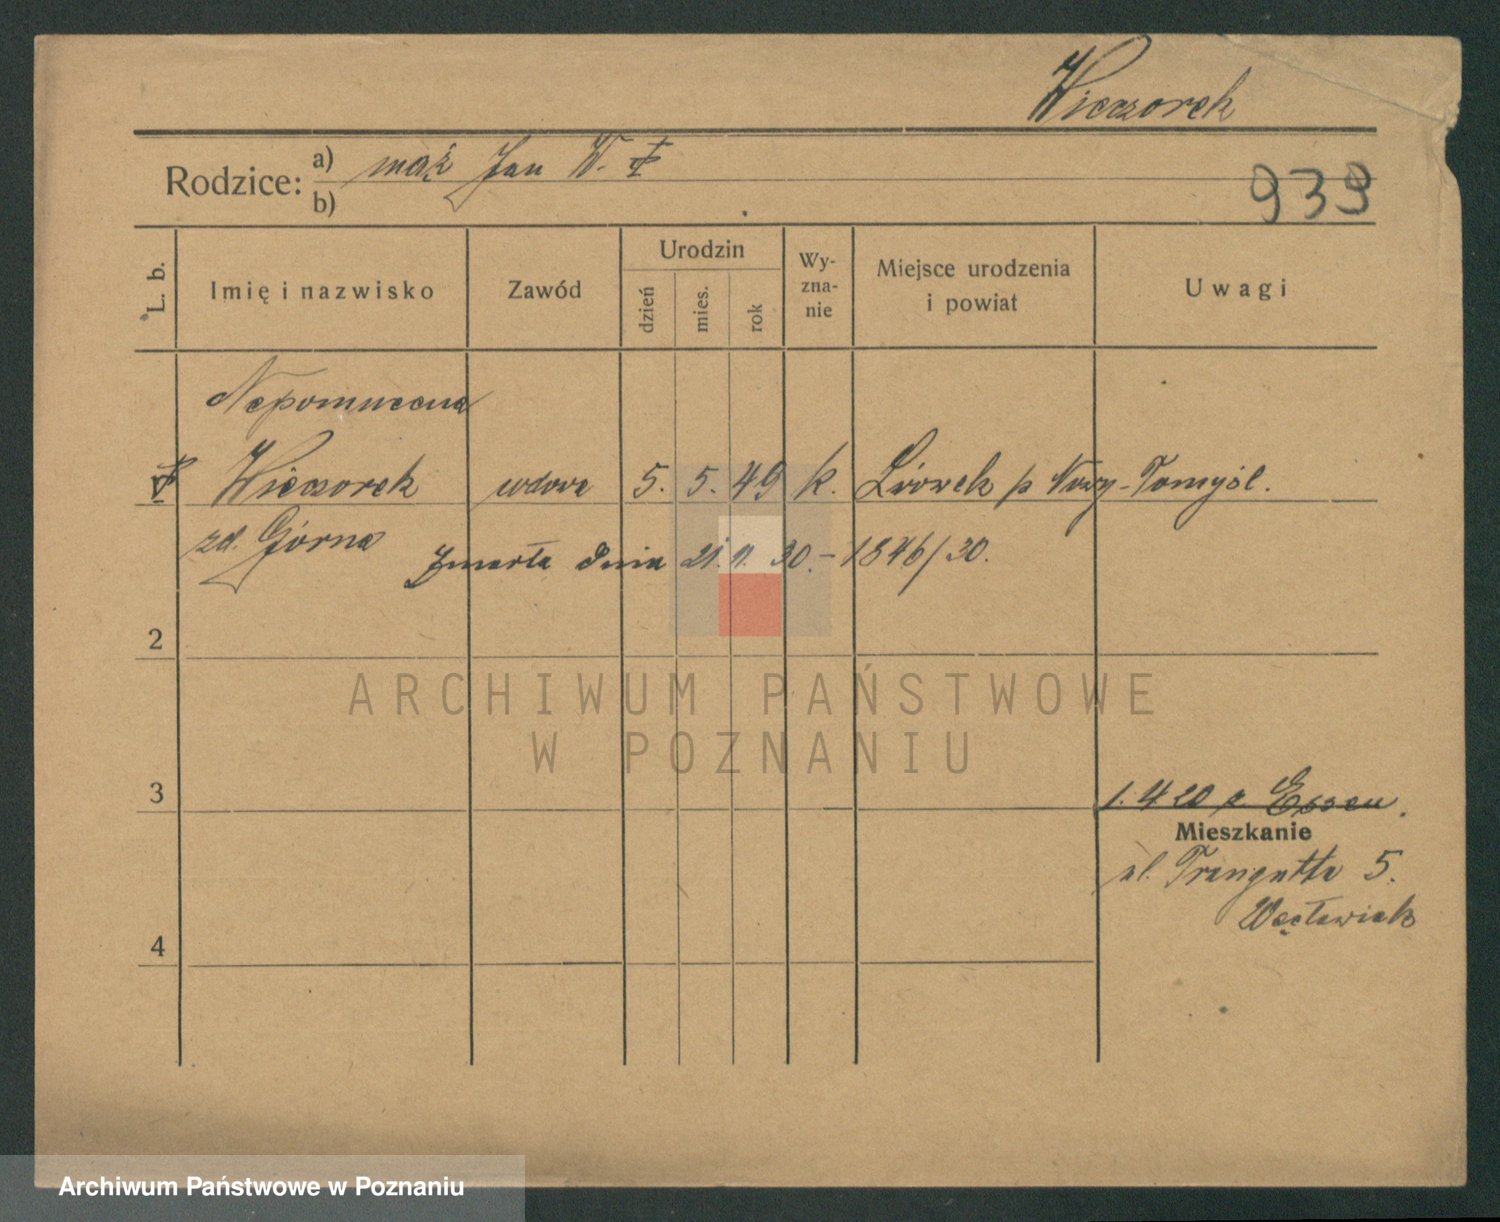 Wieczorek
Rodzice:
a) mąż Jan W. †
b)
939
L. b.
Imię i nazwisko
Zawód
Urodzin
dzień
mies.
rok
Wy-
zna-
nie
Miejsce urodzenia
i powiat
Uwagi
Nepomucena
Wieczorek wdowa 5. 5. 49 k. Lwowek p Nowy-Tomyśl.
zd. Górna
Zmarła dnia 21. 11. 30. – 1846/30.
2
3
4
1. 4 20 z Essen.
Mieszkanie
ul. Traugutta 5.
Wacławiak
ARCHIWUM PAŃSTWOWE
W POZNANIU
Archiwum Państwowe w Poznaniu